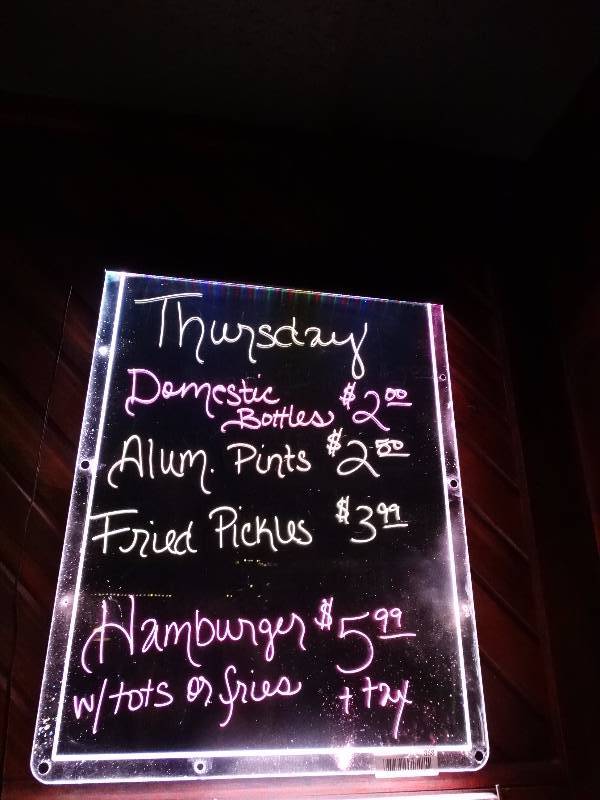 Thursday
Domestic
Bottles $2.00
Alum. Pints $2.50
Fried Pickles $3.99
Hamburger $5.99
w/tots or fries + tax